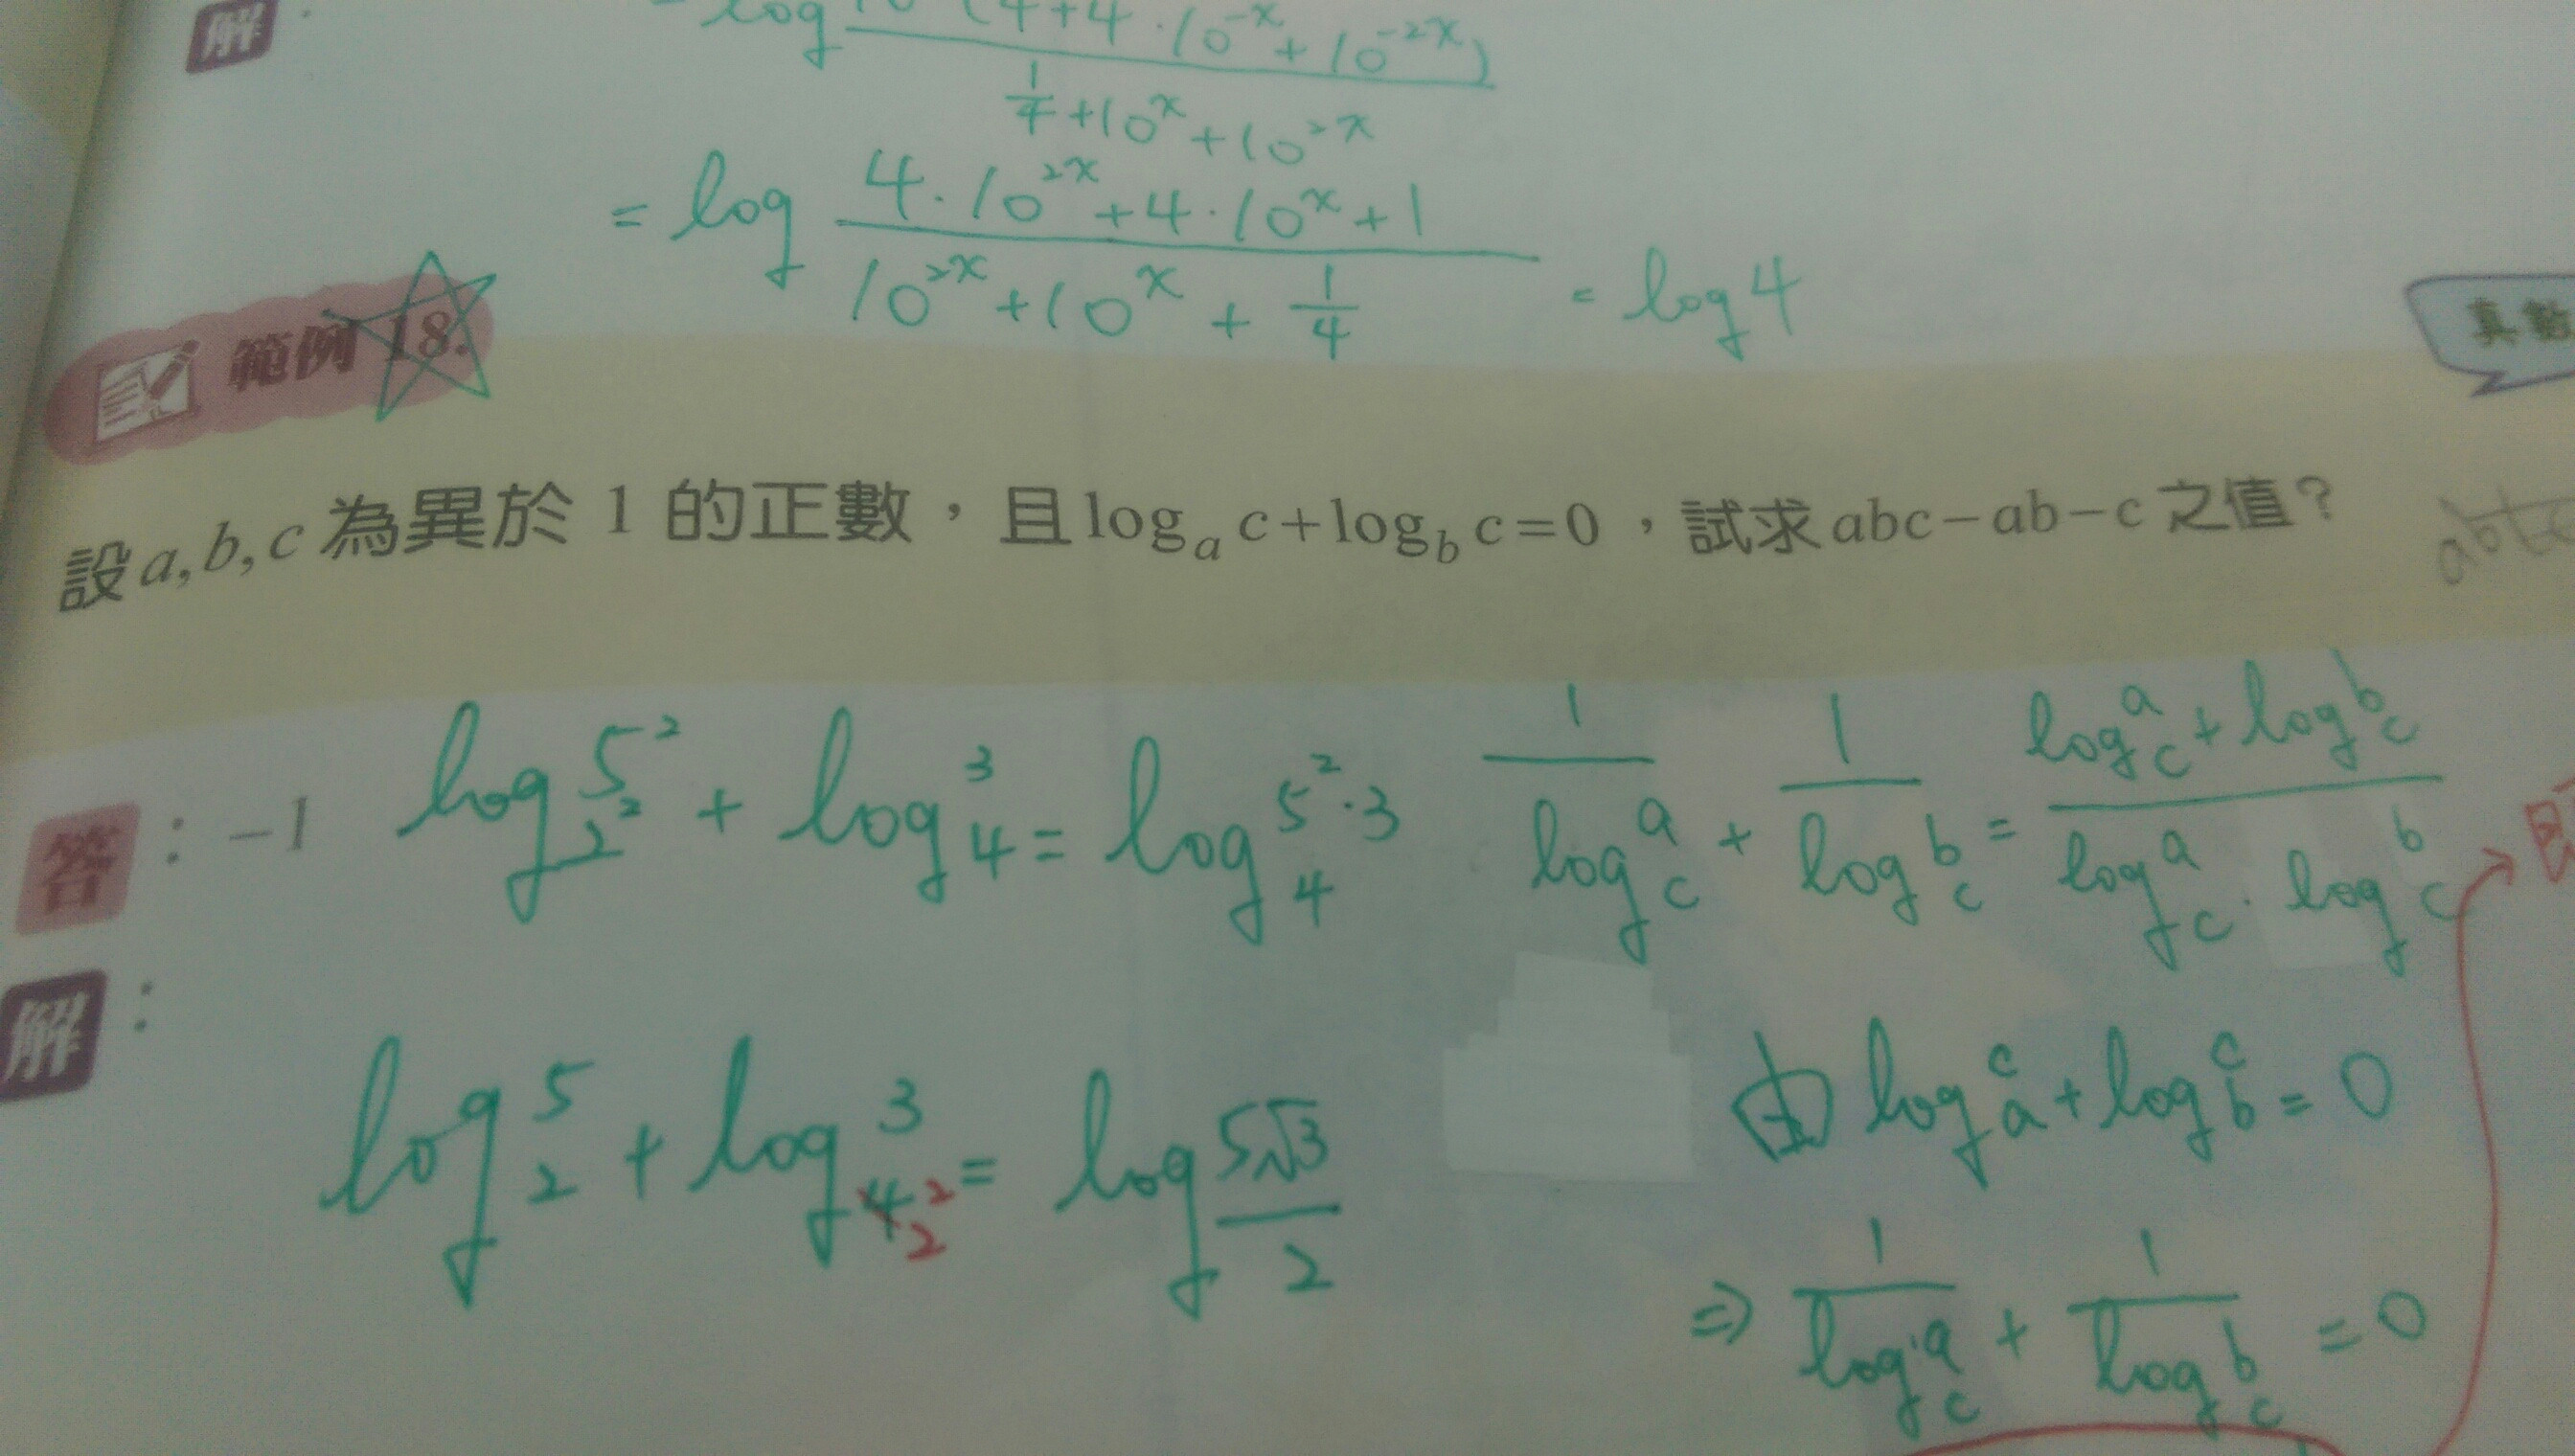 解
log (4+4·10^-x+10^-2x)
1/4+10^x+10^2x
= log (4·10^2x+4·10^x+1)/(10^2x+10^x+1/4) = log4
範例 18.
真數
設a,b,c為異於 1 的正數，且log_a c+log_b c=0，試求abc−ab−c之值？
答：−1
log_2^2 5^2 + log_4 3 = log_4 5^2·3
1/log_c a + 1/log_c b = (log_c a+log_c b)/(log_c a·log_c b)
解：
log_2 5 + log_4 2^2 3 = log 5√3/2
由 log_a c+log_b c=0
⇒ 1/log_c a + 1/log_c b = 0